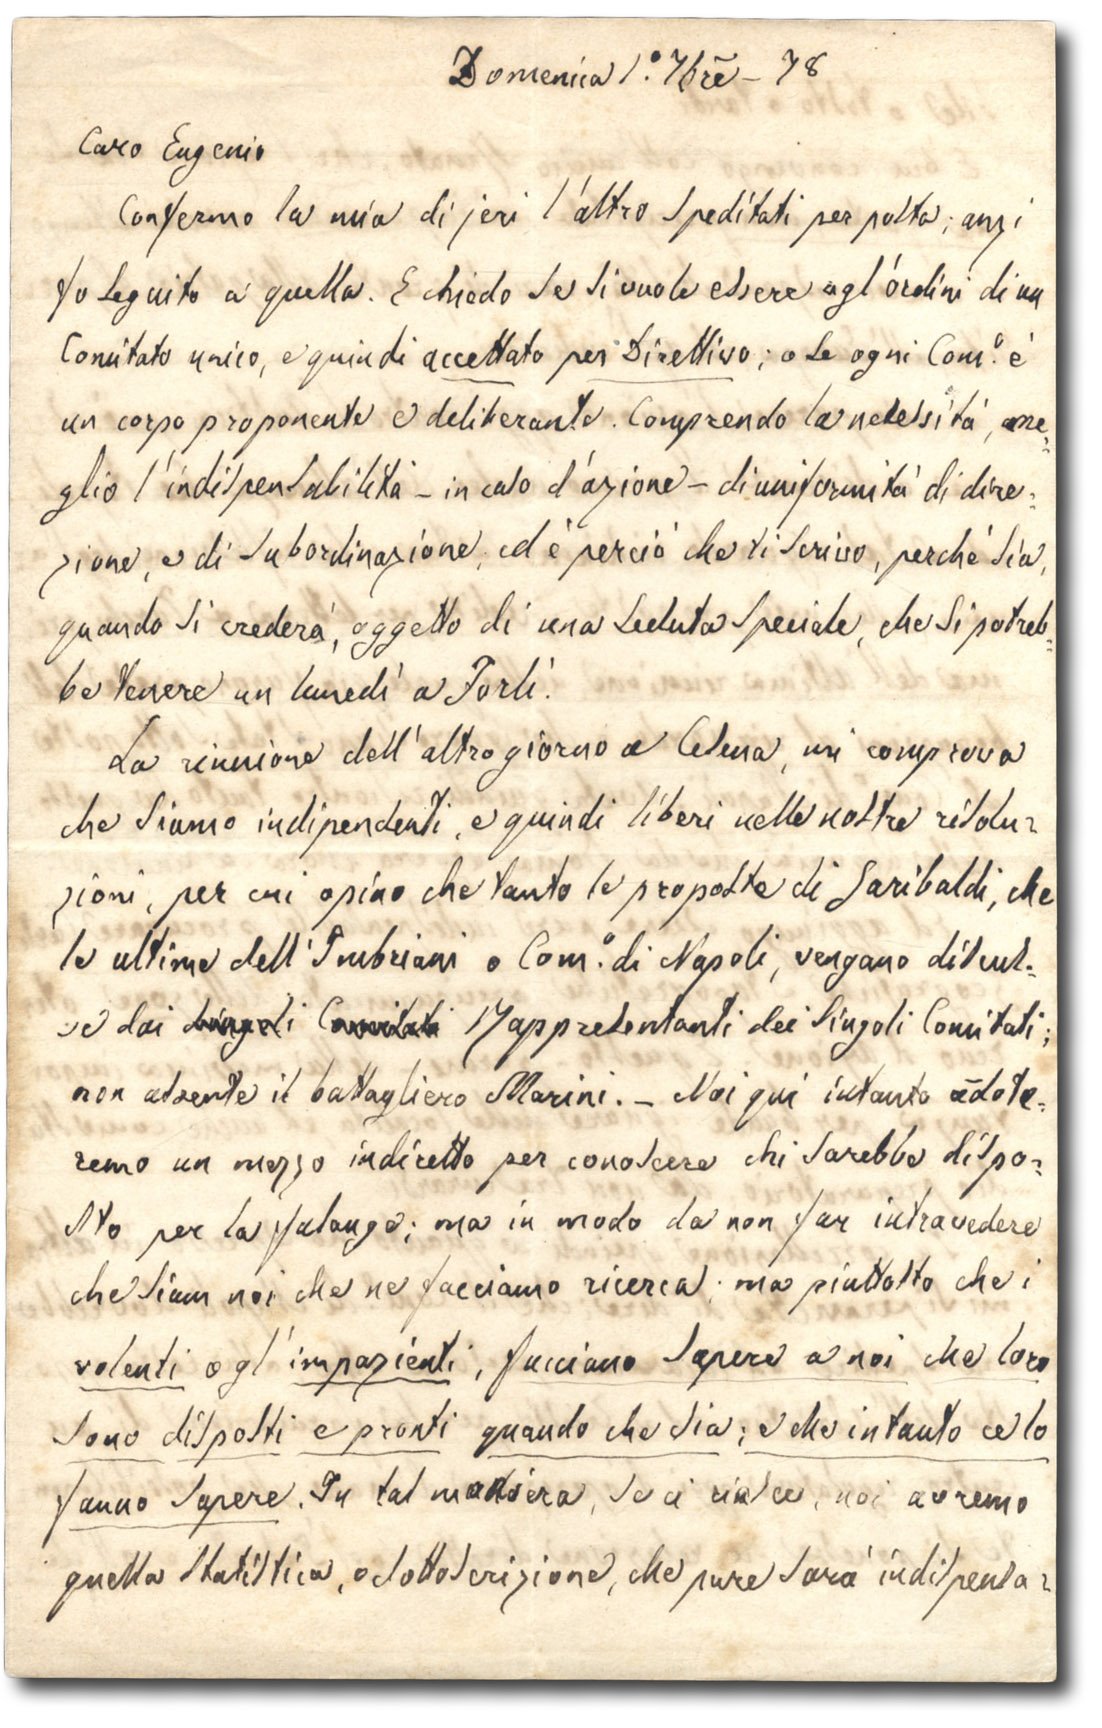 Domenica 1.° 7bre - 78
Caro Eugenio
Confermo la mia di jeri l'altro speditati per posta; anzi
fo seguito a quella. E chiedo se si vuole essere agl'ordini di un
Comitato unico, e quindi accettato per Direttivo; o se ogni Com.° è
un corpo proponente e deliberante. Comprendo la necessità, me=
glio l'indispensabilità - in caso d'azione - di uniformità di dire=
zione, e di subordinazione, ed è perciò che ti scrivo, perché sia,
quando si crederà, oggetto di una seduta speciale, che si potreb=
be tenere un lunedì a Forlì.
La riunione dell'altro giorno a Cesena, mi comprova
che siamo indipendenti, e quindi liberi nelle nostre risolu=
zioni, per cui opino che tanto le proposte di Garibaldi, che
le ultime dell'Imbriani o Com.° di Napoli, vengano discus=
se dai singoli Comitati rappresentanti dei singoli Comitati;
non assente il battagliero Marini. - Noi qui intanto adote=
remo un mezzo indiretto per conoscere chi sarebbe dispo=
sto per la falange; ma in modo da non far intravedere
che siam noi che ne facciamo ricerca; ma piuttosto che i
volenti o gl'impazienti, facciano sapere a noi che loro
sono disposti e pronti quando che sia; e che intanto ce lo
fanno sapere. In tal maniera, se ci riesce, noi avremo
quella statistica, o sottoscrizione, che pure sarà indispensa=